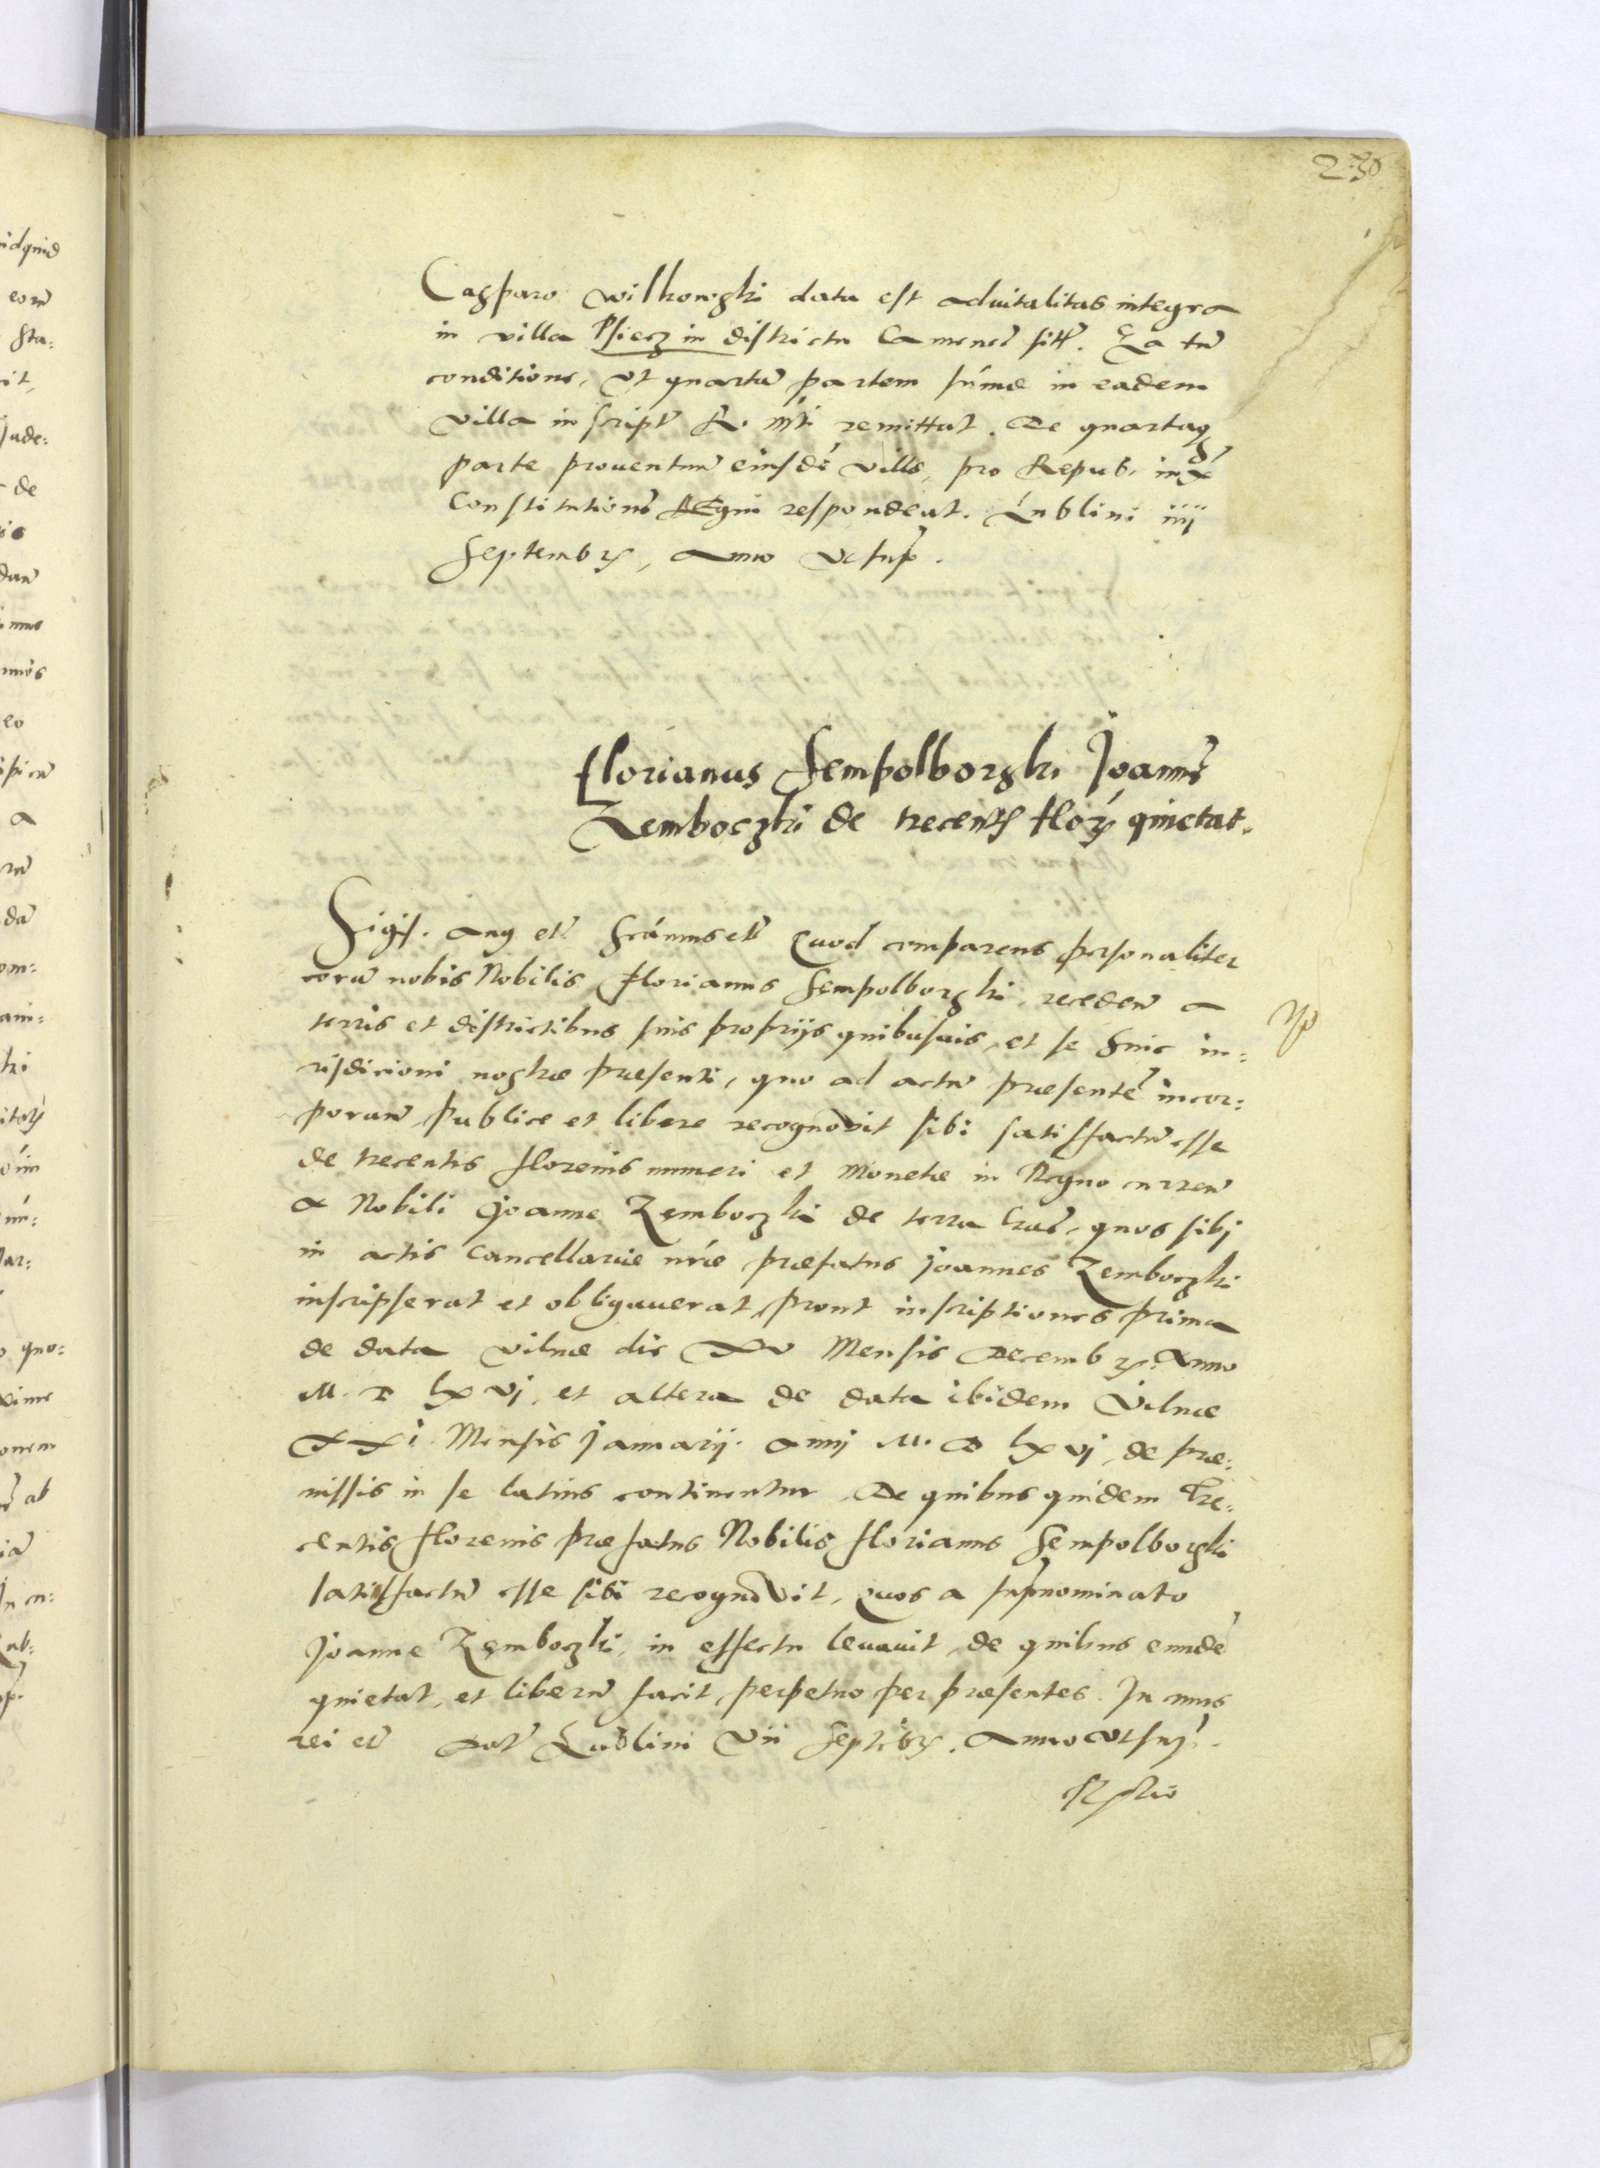 230
Casparo Wilkowski data est aduitalitas integra
in villa Psiecz in districtu Camenen̄ sitt. Ea tn̄
conditione, Vt quartā partem sum̄e in eadem
villa in script R. M̄ti remittat. De quartaq
parte prouentuū eiusdē ville, pro Repub. iux
Constitutionē REgni respondeat. Lublini iiij
Septembr, Anno Vt sup.
Florianus Sempolborski Joannē
Zemboczki de trecentis flor quietat.
Sigis. Aug etc Scām̄us etc Quod comparens personaliter
corā nobis Nobilis Florianus Sempolborski, recedeñ a
terris et districtibus suis proprijs quibusuis, et se huic iu:
risdicioni nostræ præsenti, quo ad actū præsentē incor:
porañ, publice et libere recognovit sibi satisfactū esse
de trecentis florenis numeri et Monetæ in Regno curreñ
a Nobili Joanne Zemboczki de terra quos sibj
in actis Cancellariæ nr̄æ præfatus Joannes Zemboczki
inscripserat et obligauerat, prout inscriptiones prima
de data Vilnæ die XV Mensis Decembr. Anno
M. D LX Vj, et altera de data ibidem Vilnæ
XXi Mensis Januarij. Annj M. D LX Vj, de præ:
missis in se latius continentur. De quibus quidem Tre:
centis florenis præfatus Nobilis Florianus Sempolborski
satisfactū esse sibi recognovit, quos a supnominato
Joanne Zemboczki, in effectu leuauit, de quibus eundē
quietat, et liberū facit, perpetuo per præsentes. In cuius
rei etc Dat Lublini Vii Septēbr. Anno Vt sup.